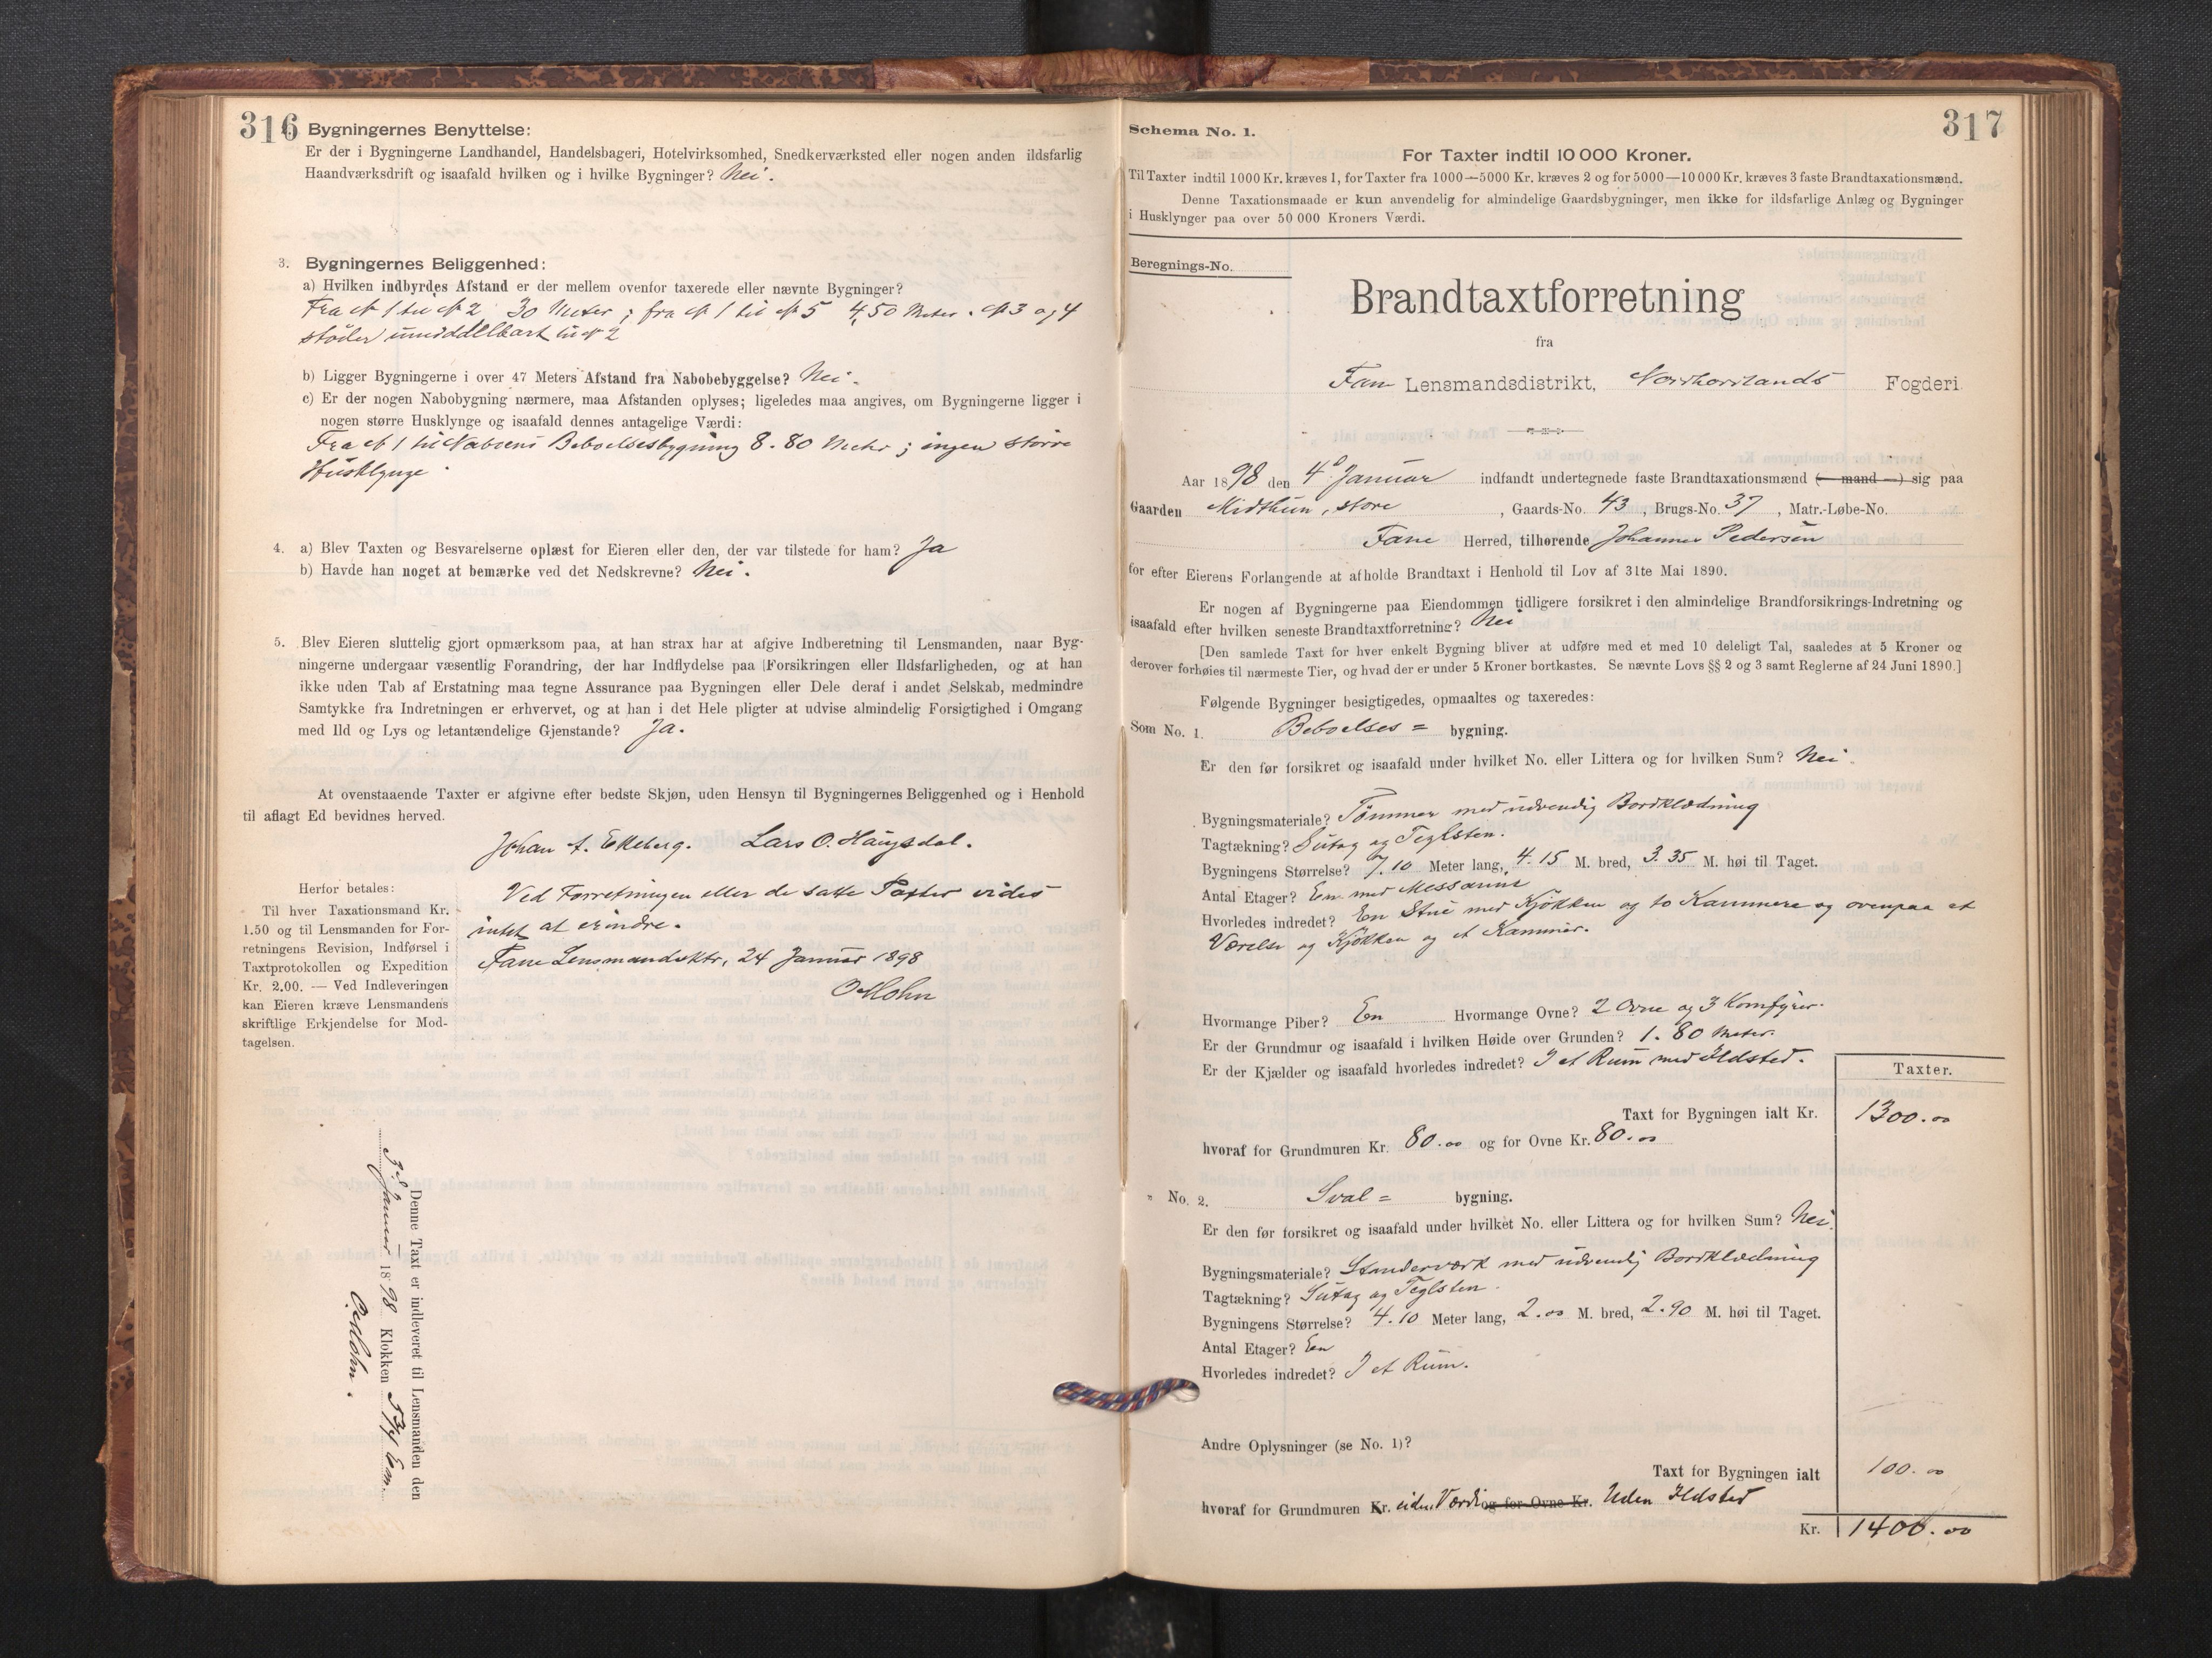 316
Bygningernes Benyttelse:
Er der i Bygningerne Landhandel, Handelsbageri, Hotelvirksomhed, Snedkerværksted eller nogen anden ildsfarlig
Haandværksdrift og isaafald hvilken og i hvilke Bygninger? Nei.
3. Bygningernes Beliggenhed:
a) Hvilken indbyrdes Afstand er der mellem ovenfor taxerede eller nævnte Bygninger?
Fra № 1 til № 2 30 Meter; fra № 1 til № 5 4,50 Meter. № 3 og 4
støder umiddelbart til № 2
b) Ligger Bygningerne i over 47 Meters Afstand fra Nabobebyggelse? Nei.
c) Er der nogen Nabobygning nærmere, maa Afstanden oplyses; ligeledes maa angives, om Bygningerne ligger i
nogen større Husklynge og isaafald dennes antagelige Værdi:
Fra № 1 til Naboens Beboelsesbygning 8.80 Meter; ingen større
Husklynge.
4. a) Blev Taxten og Besvarelserne oplæst for Eieren eller den, der var tilstede for ham? Ja
b) Havde han noget at bemærke ved det Nedskrevne? Nei.
5. Blev Eieren sluttelig gjort opmærksom paa, at han strax har at afgive Indberetning til Lensmanden, naar Byg-
ningerne undergaar væsentlig Forandring, der har Indflydelse paa Forsikringen eller Ildsfarligheden, og at han
ikke uden Tab af Erstatning maa tegne Assurance paa Bygningen eller Dele deraf i andet Selskab, medmindre
Samtykke fra Indretningen er erhvervet, og at han i det Hele pligter at udvise almindelig Forsigtighed i Omgang
med Ild og Lys og letantændelige Gjenstande? Ja.
At ovenstaaende Taxter er afgivne efter bedste Skjøn, uden Hensyn til Bygningernes Beliggenhed og i Henhold
til aflagt Ed bevidnes herved.
Johan A. Ekeberg. Lars O. Haugsdal.
Herfor betales:
Til hver Taxationsmand Kr.
1.50 og til Lensmanden for For-
retningens Revision, Indførsel i
Taxtprotokollen og Expedition
Kr. 2.00. — Ved Indleveringen
kan Eieren kræve Lensmandens
skriftlige Erkjendelse for Mod-
tagelsen.
Ved Forretningen eller de satte Taxter vides
intet at erindre.
Fane Lensmandsktr, 24 Januar 1898
O Mohn
Denne Taxt er indleveret til Lensmanden den
Januar 1898 Klokken 5 3/4 Em.
O Mohn.
317
Schema No. 1.
For Taxter indtil 10 000 Kroner.
Til Taxter indtil 1000 Kr. kræves 1, for Taxter fra 1000—5000 Kr. kræves 2 og for 5000—10 000 Kr. kræves 3 faste Brandtaxationsmænd.
Denne Taxationsmaade er kun anvendelig for almindelige Gaardsbygninger, men ikke for ildsfarlige Anlæg og Bygninger
i Husklynger paa over 50 000 Kroners Værdi.
Beregnings-No.
Brandtaxtforretning
fra
Fane Lensmandsdistrikt, Nordhorlands Fogderi
Aar 1898 den 4de Januar indfandt undertegnede faste Brandtaxationsmænd (— mand —) sig paa
Gaarden Midthun, store, Gaards-No. 43, Brugs-No. 37, Matr.-Løbe-No.
Fane Herred, tilhørende Johannes Pedersen
for efter Eierens Forlangende at afholde Brandtaxt i Henhold til Lov af 31te Mai 1890.
Er nogen af Bygningerne paa Eiendommen tidligere forsikret i den almindelige Brandforsikrings-Indretning og
isaafald efter hvilken seneste Brandtaxtforretning? Nei
[Den samlede Taxt for hver enkelt Bygning bliver at udføre med et med 10 deleligt Tal, saaledes at 5 Kroner og
derover forhøies til nærmeste Tier, og hvad der er under 5 Kroner bortkastes. Se nævnte Lovs §§ 2 og 3 samt Reglerne af 24 Juni 1890.]
Følgende Bygninger besigtigedes, opmaaltes og taxeredes:
Som No. 1. Beboelses= bygning.
Er den før forsikret og isaafald under hvilket No. eller Littera og for hvilken Sum? Nei.
Bygningsmateriale? Tømmer med udvendig Bordklædning
Tagtækning? Sutag og Teglsten.
Bygningens Størrelse? 7.10 Meter lang, 4.15 M. bred, 3.35 M. høi til Taget.
Antal Etager? Een med Messanin
Hvorledes indredet? En Stue med Kjøkken og to Kammere og ovenpaa et
Værelse og Kjøkken og et Kammer.
Hvormange Piber? En Hvormange Ovne? 2 Ovne og 3 Komfyrer.
Er der Grundmur og isaafald i hvilken Høide over Grunden? 1.80 Meter.
Er der Kjælder og isaafald hvorledes indredet? I et Rum med Ildsted.
Taxter.
Taxt for Bygningen ialt Kr. 1300.00
hvoraf for Grundmuren Kr. 80.00 og for Ovne Kr. 80.00
" No. 2. Sval= bygning.
Er den før forsikret og isaafald under hvilket No. eller Littera og for hvilken Sum? Nei.
Bygningsmateriale? Standerværk med udvendig Bordklædning
Tagtækning? Sutag og Teglsten.
Bygningens Størrelse? 4.10 Meter lang, 2.00 M. bred, 2.90 M. høi til Taget.
Antal Etager? Een
Hvorledes indredet? I et Rum.
Andre Oplysninger (se No. 1)?
Taxt for Bygningen ialt 100.00
hvoraf for Grundmuren Kr. uden Værdi og for Ovne Kr. Uden Ildsted
Kr. 1400.00